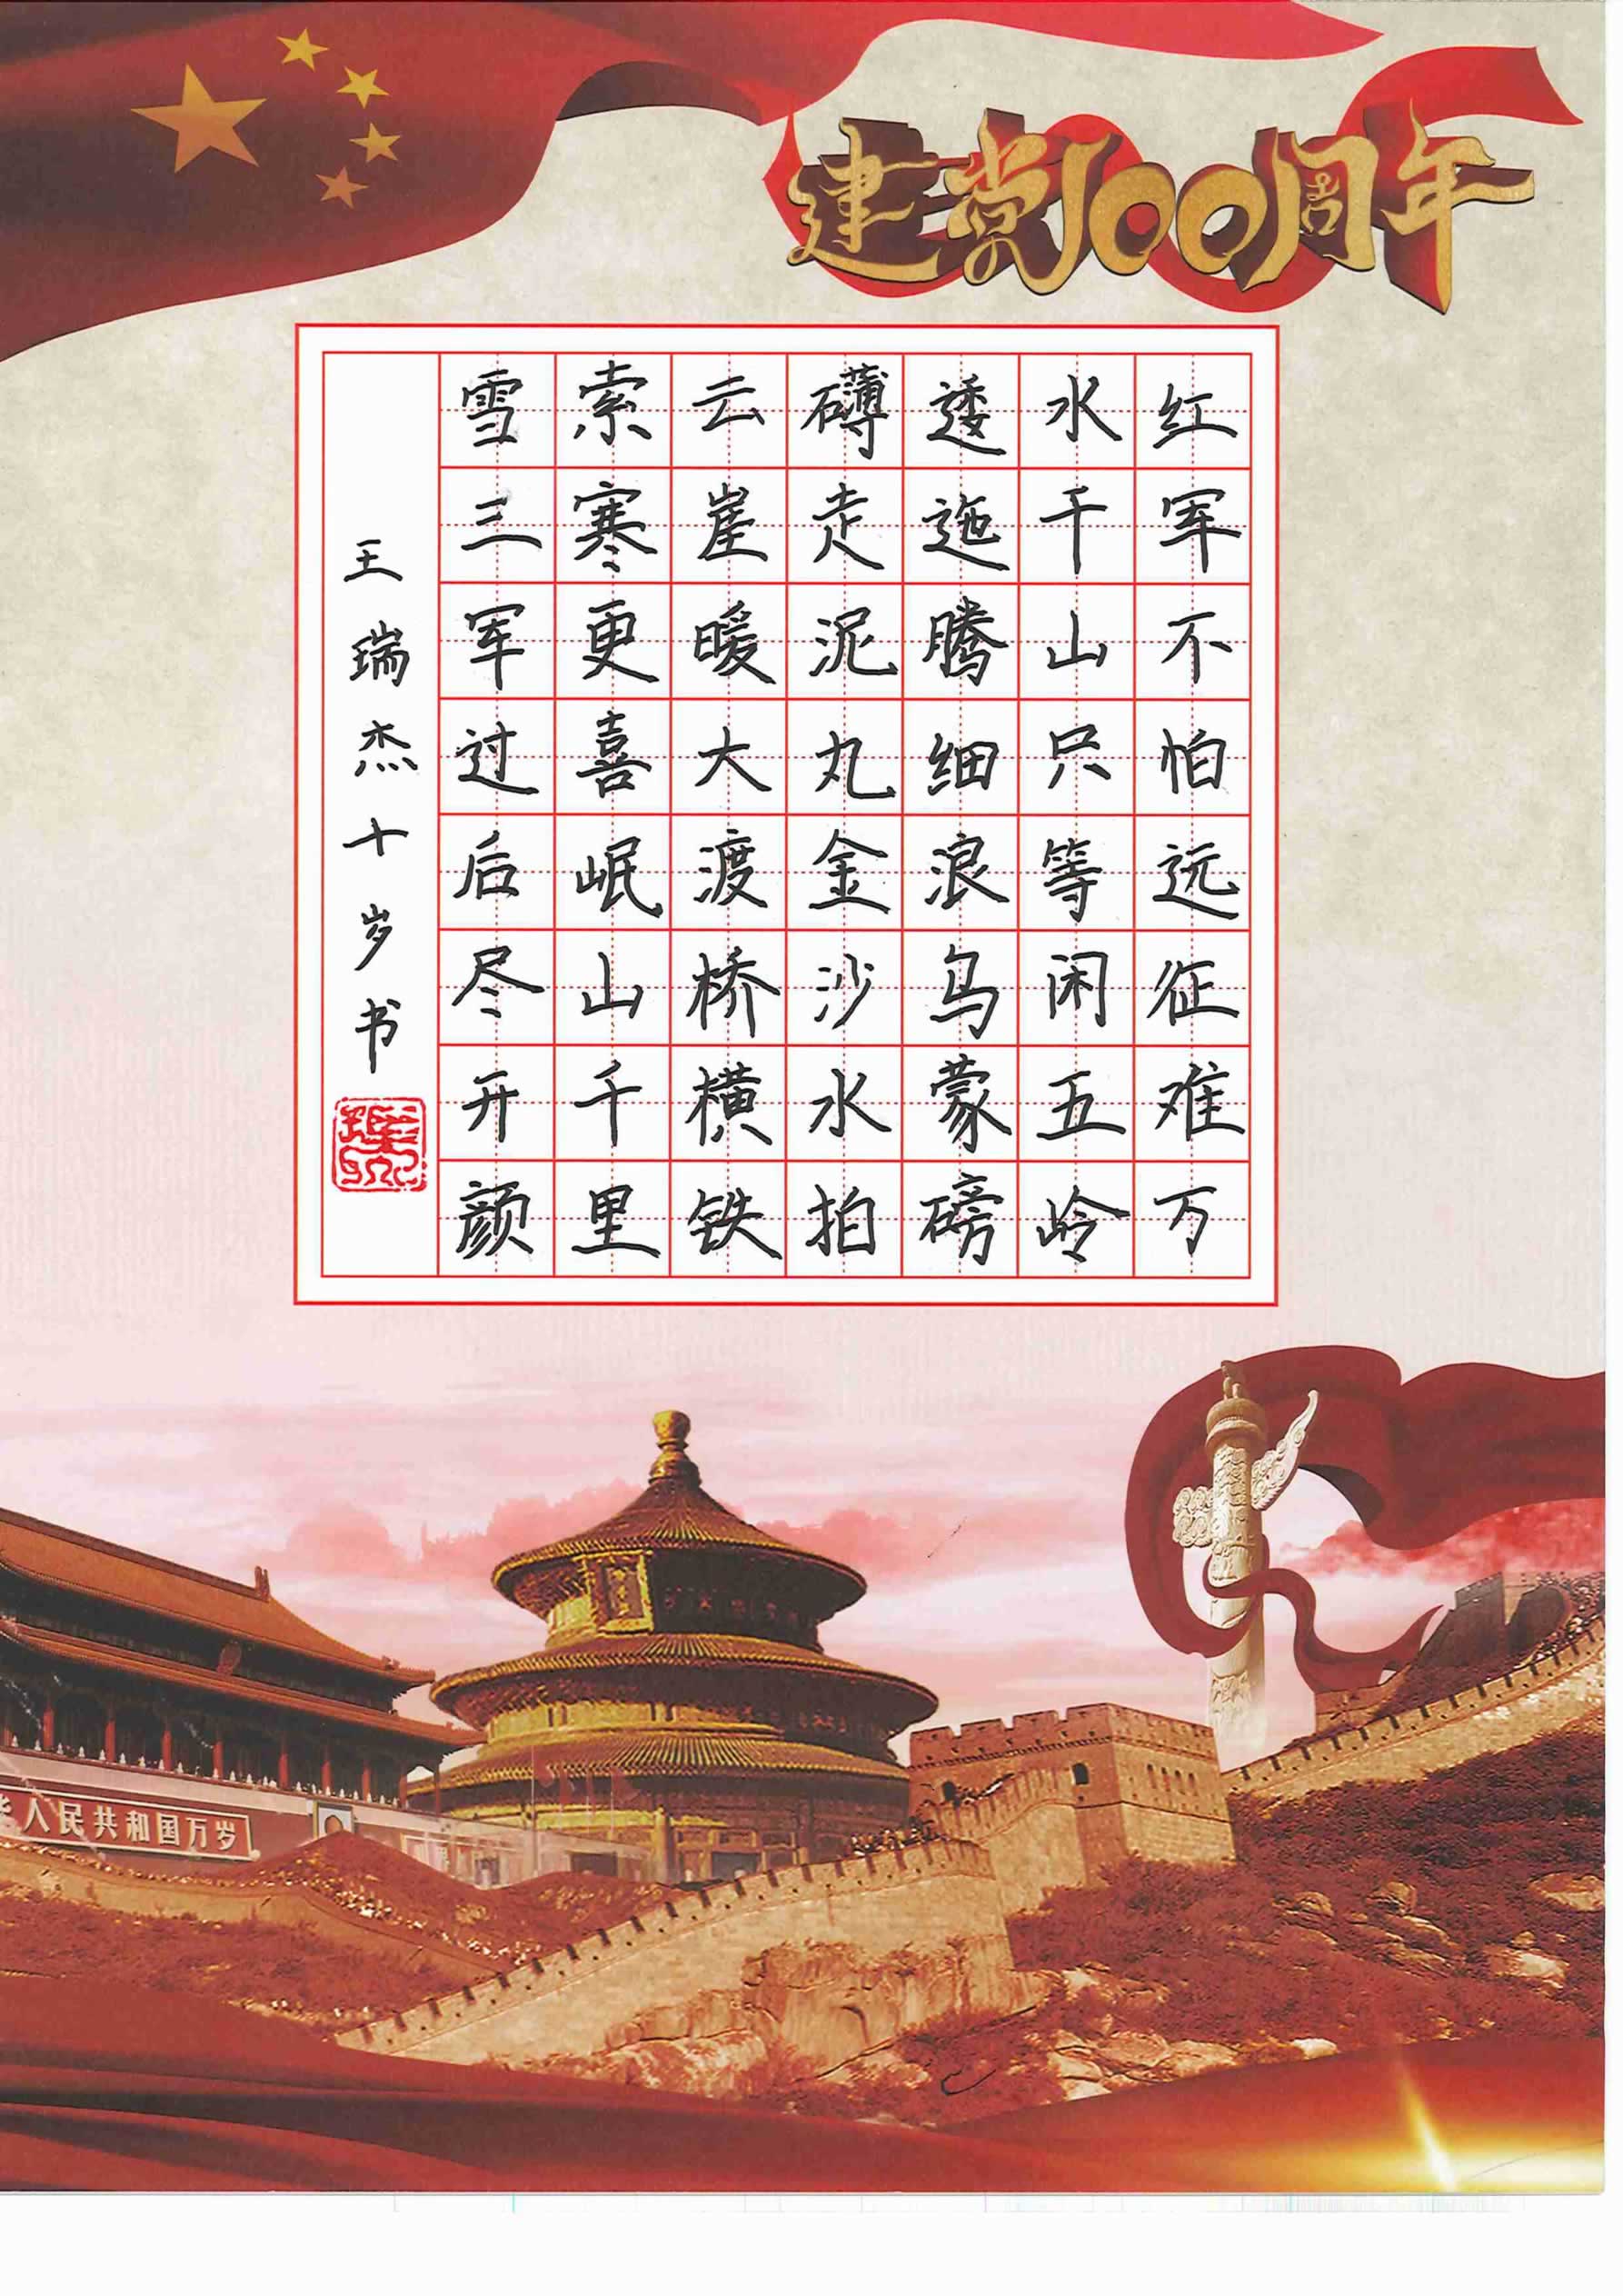 建党100周年
红军不怕远征难万
水千山只等闲五岭
逶迤腾细浪乌蒙磅
礴走泥丸金沙水拍
云崖暖大渡桥横铁
索寒更喜岷山千里
雪三军过后尽开颜
王瑞杰十岁书
人民共和国万岁